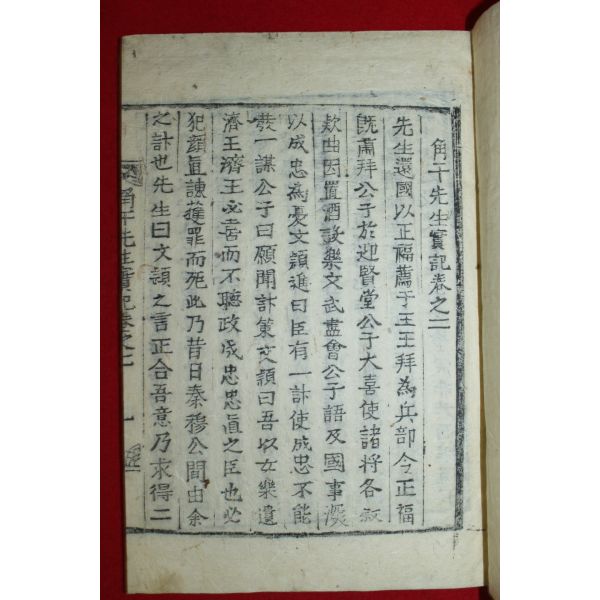 角干先生實記卷之二
先生還國以正福薦于王王拜為兵部令正福
旣肅拜公子於迎賢堂公子大喜使諸将各叙
欵曲因置酒設樂文武盡會公子語及國事深
以成忠為憂文頴進曰臣有一計使成忠不能
發一謀公子曰願聞計策文頴曰吾以女樂遺
濟王濟王必喜而不聽政成忠忠直之臣也必
犯顔直諫獲罪而死此乃昔日秦穆公間由余
之計也先生曰文頴之言正合吾意乃求得二
角干先生實記卷之二
一